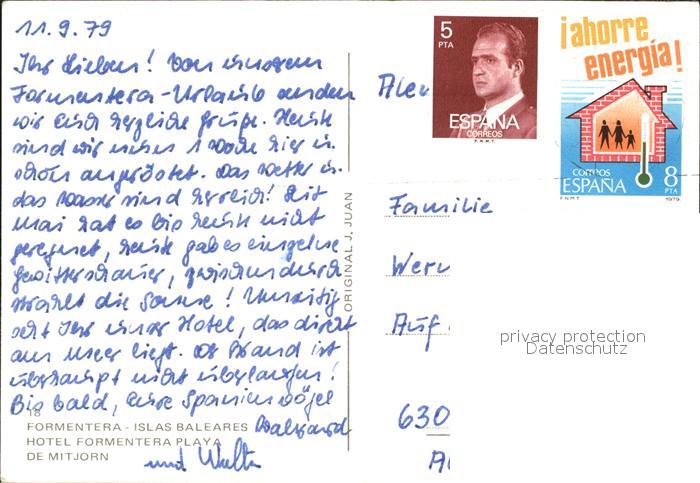 11.9.79
Ihr Lieben! Von unserem
Formentera-Urlaub senden
wir Euch herzliche Grüße. Heute
sind wir schon 1 Woche hier u.
schon angeröstet. Das Wetter u.
das Wasser sind herrlich! Seit
Mai hat es bis heute nicht
geregnet, heute gab es einzelne
Gewitterschauer, zwischendurch
strahlt die Sonne! Umseitig
seht Ihr unser Hotel, das direkt
am Meer liegt. Der Strand ist
überhaupt nicht überlaufen!
Bis bald, Eure Spanienvögel
und Walter
18
FORMENTERA - ISLAS BALEARES
HOTEL FORMENTERA PLAYA
DE MITJORN
ORIGINAL J. JUAN
5
PTA
ESPAÑA
CORREOS
F.N.M.T.
¡ahorre
energía!
CORREOS
ESPAÑA
8
PTA
F.N.M.T.
1979
Familie
Wer
Auf
630
privacy protection
Datenschutz